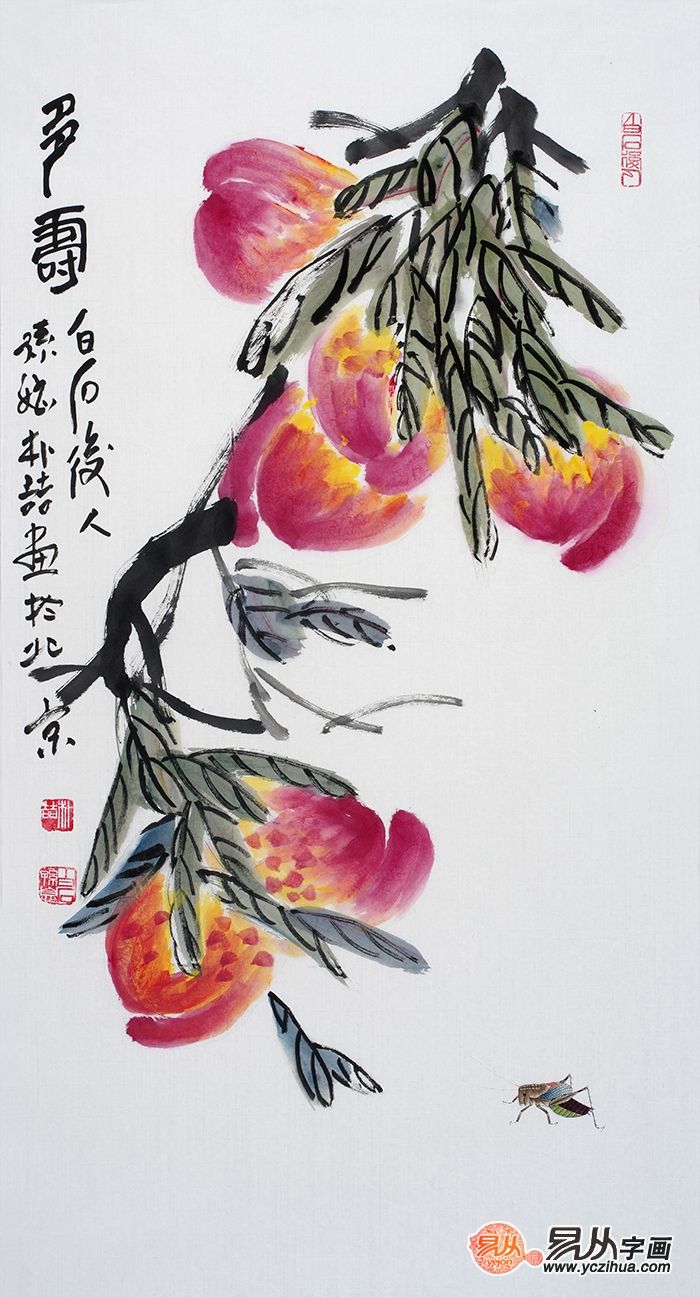 多壽
白石後人
孫媳朴喆画於北京
朴喆
易从
易从字画
www.yczihua.com